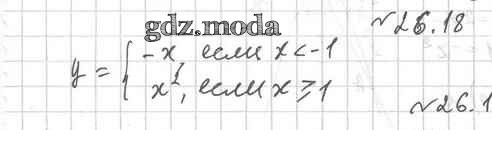 gdz.moda
№26.18
y = { -x, если x < -1
x², если x ≥ 1
№26.1